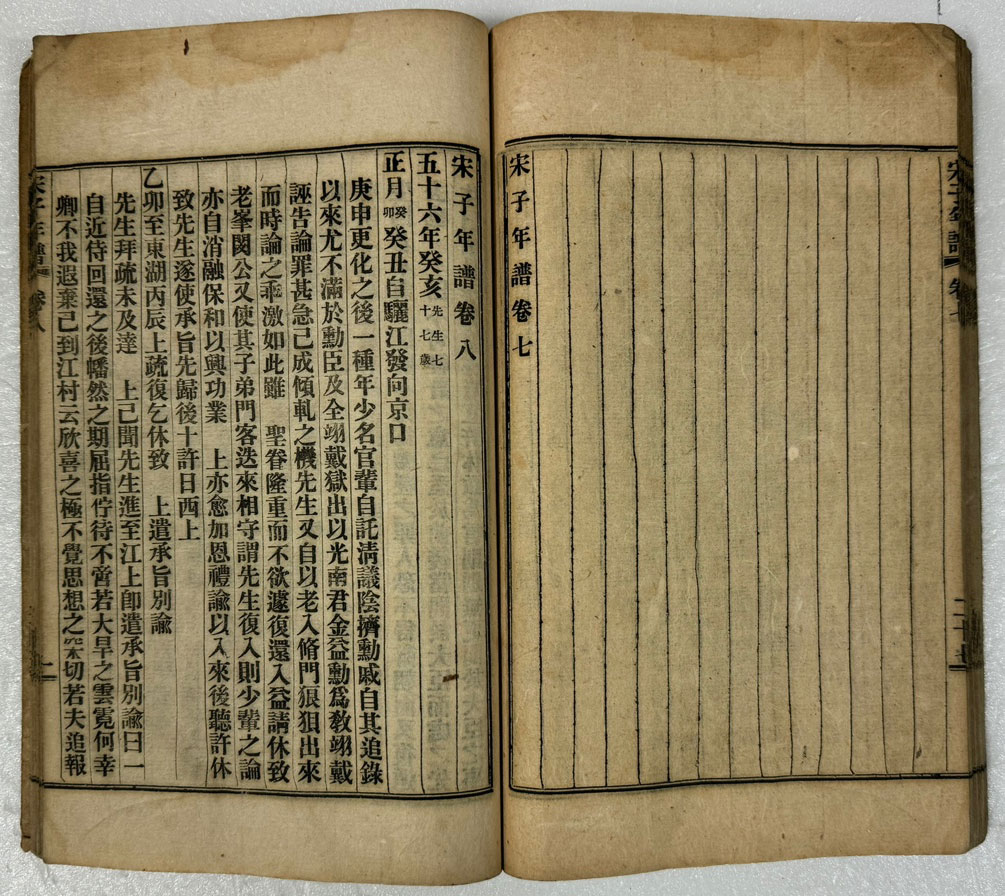 宋子年譜卷七
宋子年譜卷八
五十六年癸亥先生七十七歲
正月癸卯癸丑自驪江發向京口
庚申更化之後一種年少名官輩自託淸議陰擠勳戚自其追錄
以來尤不滿於勳臣及全翊戴獄出以光南君金益勳爲敎翊戴
誣告論罪甚急已成傾軋之機先生又自以老入脩門狼狽出來
而時論之乖激如此雖 聖眷隆重而不欲遽復還入益請休致
老峯閔公又使其子弟門客迭來相守謂先生復入則少輩之論
亦自消融保和以興功業 上亦愈加恩禮諭以入來後聽許休
致先生遂使承旨先歸後十許日西上
乙卯至東湖丙辰上疏復乞休致 上遣承旨別諭
先生拜疏未及達 上已聞先生進至江上卽遣承旨別諭曰一
自近侍回還之後幡然之期屈指佇待不啻若大旱之雲霓何幸
卿不我遐棄已到江村云欣喜之極不覺思想之冞切若夫追報
宋子年譜 卷八